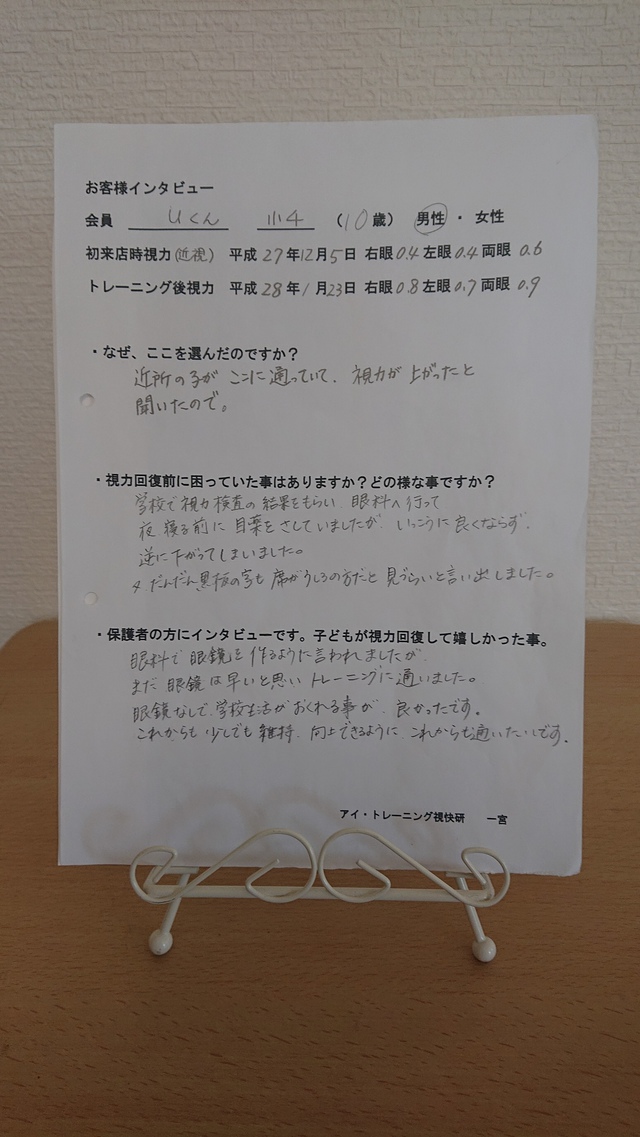 お客様インタビュー
会員 Uくん 小4 (10歳) 男性・女性
初来店時視力(近視) 平成27年12月5日 右眼0.4 左眼0.4 両眼0.6
トレーニング後視力 平成28年1月23日 右眼0.8 左眼0.7 両眼0.9
・なぜ、ここを選んだのですか?
近所の子が ここに通っていて、視力が 上がったと
聞いたので。
・視力回復前に困っていた事はありますか?どの様な事ですか?
学校で視力検査の結果をもらい、眼科へ行って
夜 寝る前に 目薬をさしていましたが、いっこうに良くならず、
逆に下がってしまいました。
だんだん黒板の字も 席がうしろの方だと 見づらいと言い出しました。
・保護者の方にインタビューです。子どもが視力回復して嬉しかった事。
眼科で 眼鏡を作るように言われましたが、
まだ 眼鏡は早いと思い トレーニングに通いました。
眼鏡なしで、学校生活が おくれる事が、良かったです。
これからも 少しでも 維持、向上できるように、これからも通いたいです。
アイ・トレーニング視快研 一宮